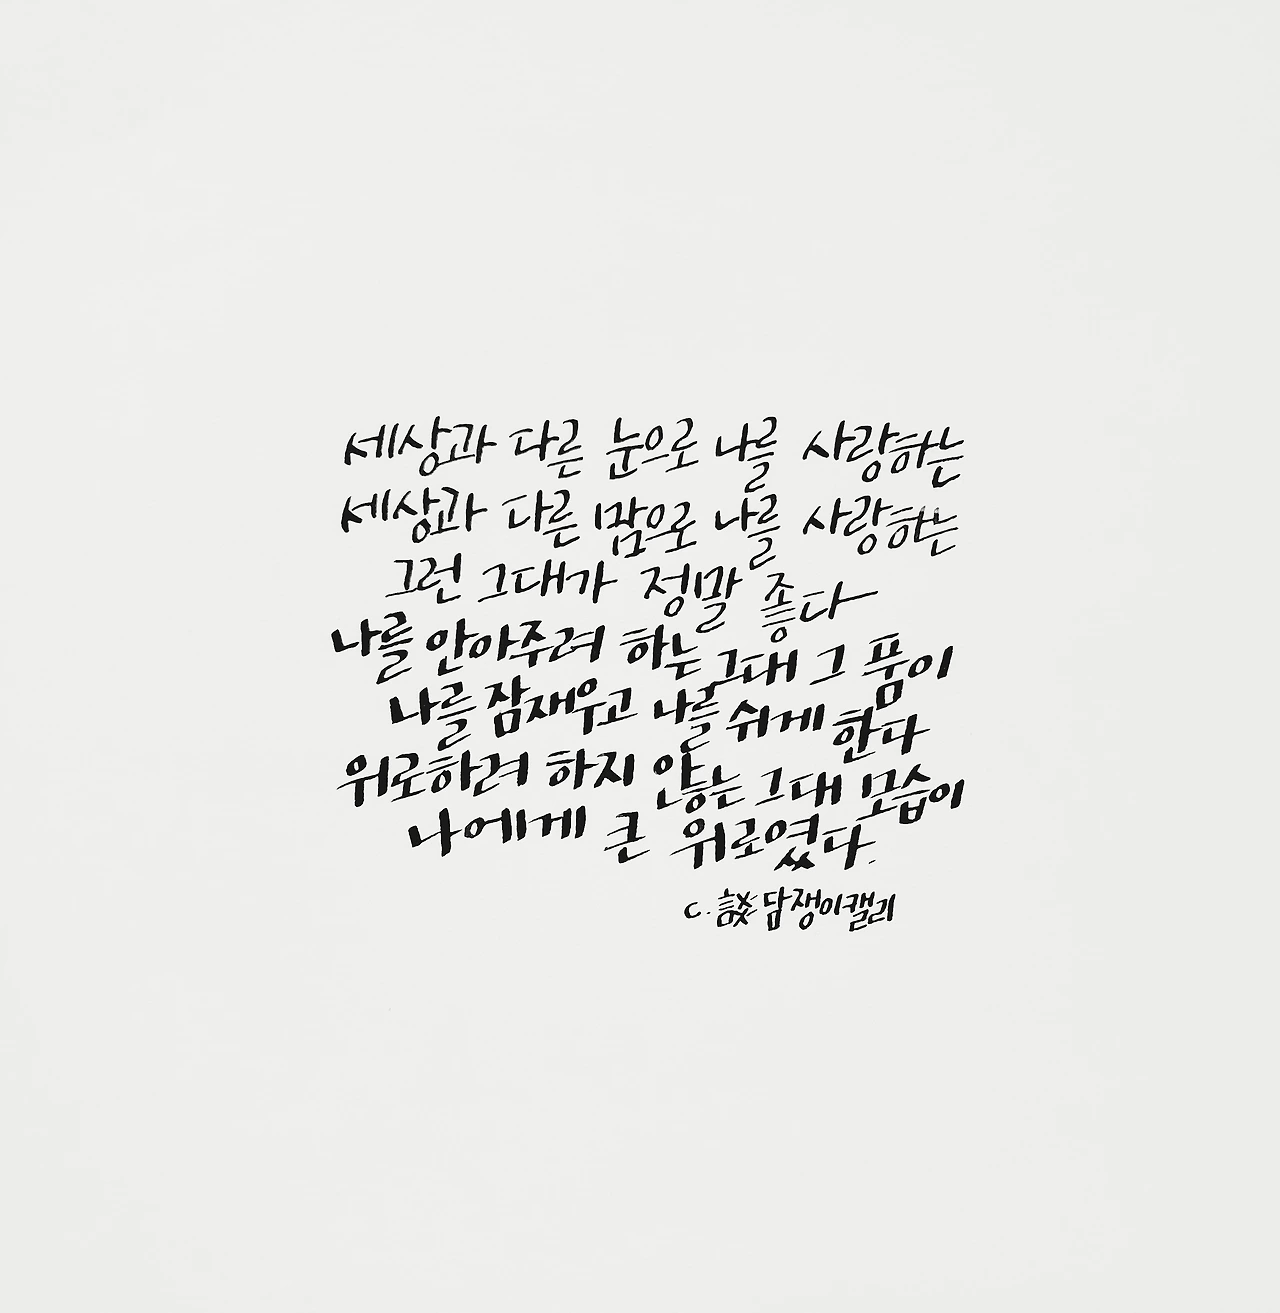 세상과 다른 눈으로 나를 사랑하는
세상과 다른 맘으로 나를 사랑하는
그런 그대가 정말 좋다
나를 안아주려 하는 그대 그 품이
나를 잠재우고 나를 쉬게 한다
위로하려 하지 않는 그대 모습이
나에게 큰 위로였다.
c. 談 담쟁이캘리